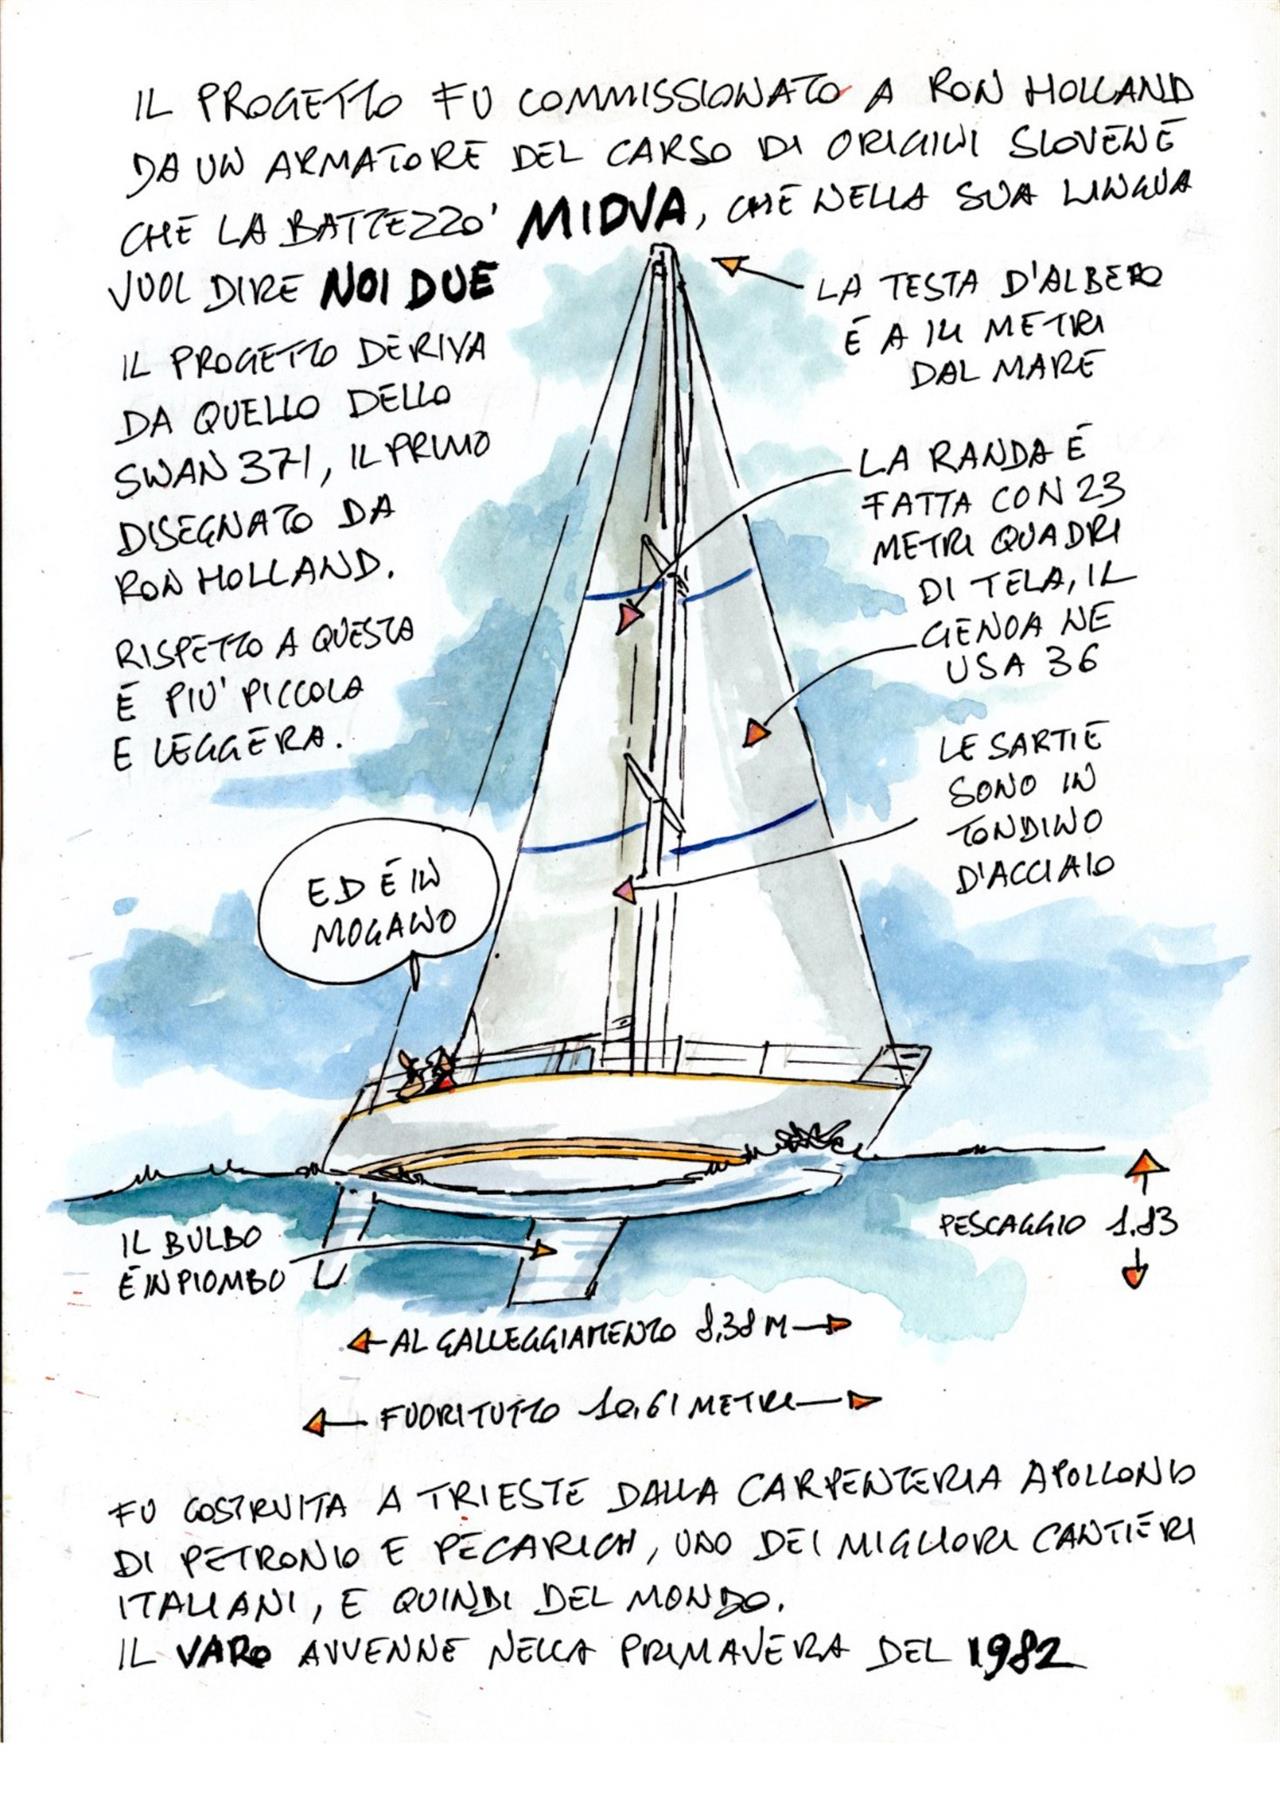 IL PROGETTO FU COMMISSIONATO A RON HOLLAND
DA UN ARMATORE DEL CARSO DI ORIGINI SLOVENE
CHE LA BATTEZZO' MIDVA, CHE NELLA SUA LINGUA
VUOL DIRE NOI DUE
IL PROGETTO DERIVA
DA QUELLO DELLO
SWAN 371, IL PRIMO
DISEGNATO DA
RON HOLLAND.
RISPETTO A QUESTA
È PIU' PICCOLA
E LEGGERA.
ED È IN
MOGANO
LA TESTA D'ALBERO
È A 14 METRI
DAL MARE
LA RANDA È
FATTA CON 23
METRI QUADRI
DI TELA, IL
GENOA NE
USA 36
LE SARTIE
SONO IN
TONDINO
D'ACCIAIO
IL BULBO
È IN PIOMBO
PESCAGGIO 1.83
AL GALLEGGIAMENTO 8,38 M
FUORITUTTO 10,61 METRI
FU COSTRUITA A TRIESTE DALLA CARPENTERIA APOLLONIO
DI PETRONIO E PECARICH, UNO DEI MIGLIORI CANTIERI
ITALIANI, E QUINDI DEL MONDO.
IL VARO AVVENNE NELLA PRIMAVERA DEL 1982